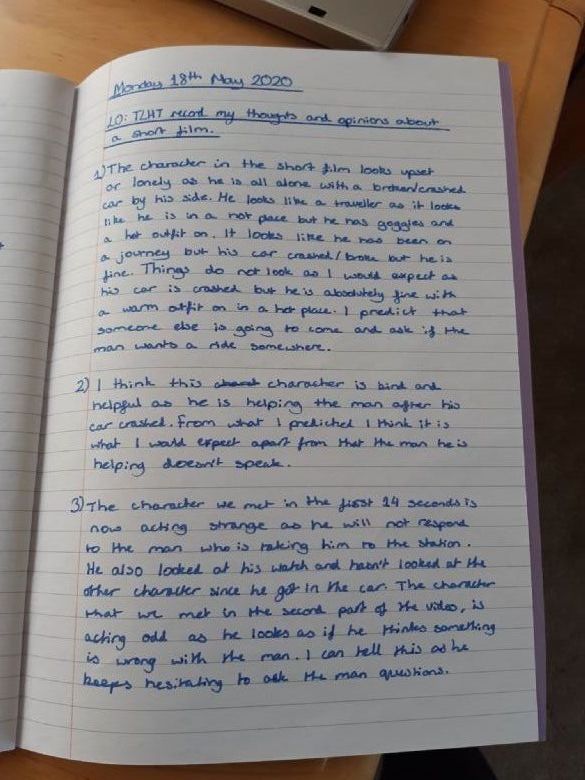 Monday 18th May 2020
LO: TLHT record my thoughts and opinions about
a short film.
1) The character in the short film looks upset
or lonely as he is all alone with a broken/crashed
car by his side. He looks like a traveller as it looks
like he is in a hot place but he has goggles and
a hot outfit on. It looks like he has been on
a journey but his car crashed/broke but he is
fine. Things do not look as I would expect as
his car is crashed but he is absolutely fine with
a warm outfit on in a hot place. I predict that
someone else is going to come and ask if the
man wants a ride somewhere.
2) I think this character is kind and
helpful as he is helping the man after his
car crashed. From what I predicted I think it is
what I would expect apart from that the man he is
helping doesn't speak.
3) The character we met in the first 14 seconds is
now acting strange as he will not respond
to the man who is taking him to the station.
He also looked at his watch and hasn't looked at the
other character since he got in the car. The character
that we met in the second part of the video, is
acting odd as he looks as if he thinks something
is wrong with the man. I can tell this as he
keeps hesitating to ask the man questions.